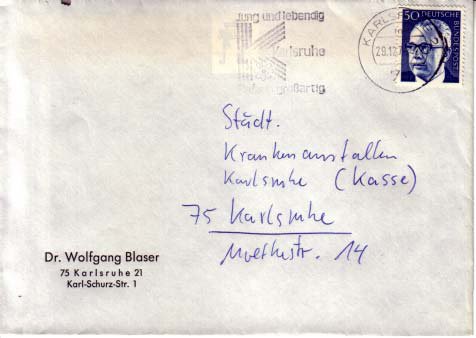 jung und lebendig
Karlsruhe
großartig
KARLS
29.12.7
50 DEUTSCHE BUNDESPOST
Städt.
Krankenanstalten
Karlsruhe (Kasse)
75 Karlsruhe
Moltkestr. 14
Dr. Wolfgang Blaser
75 Karlsruhe 21
Karl-Schurz-Str. 1